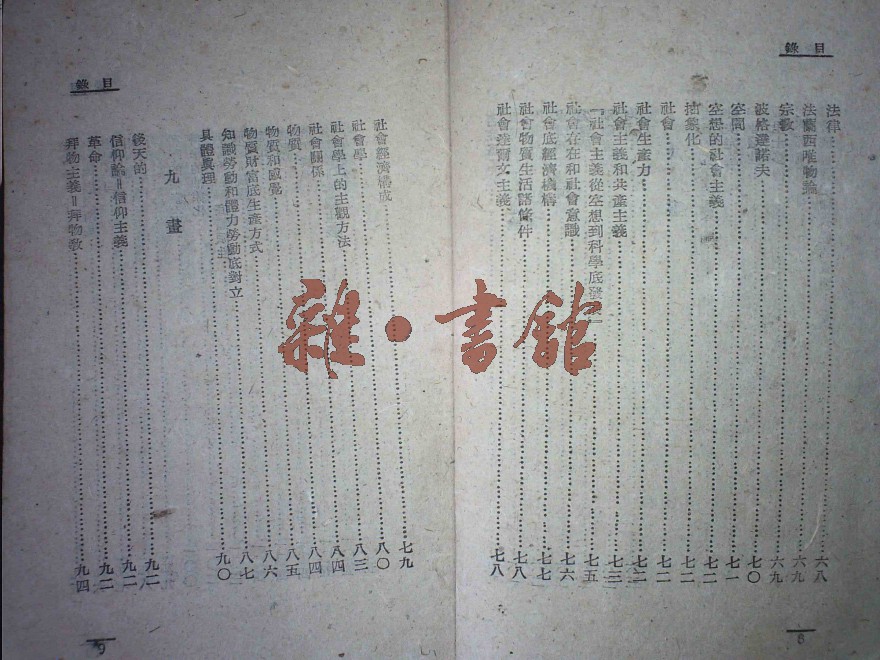 目錄
法律……六八
法蘭西唯物論……六九
宗教……六九
波格達諾夫……七〇
空間……七一
空想的社會主義……七二
抽象化……七二
社會……七二
社會生產力……七二
社會主義和共產主義……七三
「社會主義從空想到科學底發……七五
社會存在和社會意識……七六
社會底經濟機構……七七
社會物質生活諸條件……七八
社會達爾文主義……七八
8
目錄
社會經濟構成……七九
社會學……八〇
社會學上的主觀方法……八三
社會關係……八四
物質……八四
物質和感覺……八五
物質財富底生產方式……八六
知識勞動和體力勞動底對立……八七
具體真理……九〇
九畫
後天的……九二
信仰論=信仰主義……九二
革命……九二
拜物主義=拜物教……九四
9
雜·書館